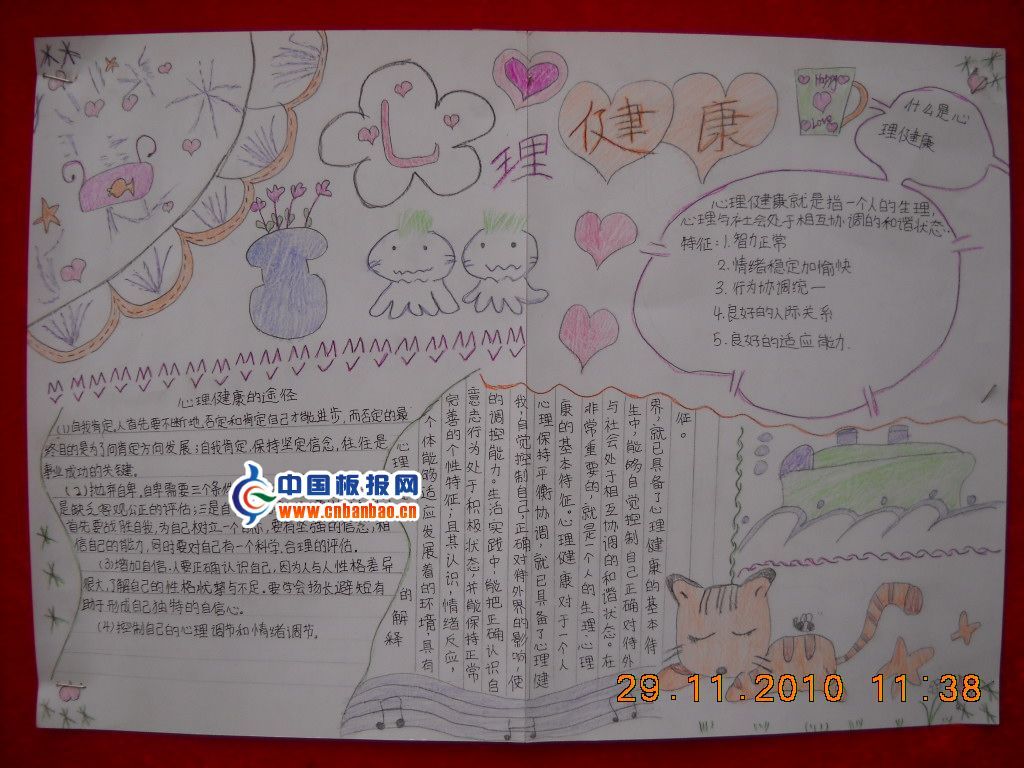 心理健康
Happy
Love
什么是心
理健康
心理健康就是指一个人的生理,
心理与社会处于相互协调的和谐状态.
特征:1.智力正常
2.情绪稳定加愉快
3.行为协调统一
4.良好的人际关系
5.良好的适应能力.
心理健康的途径
(1)自我肯定,人首先要不断地否定和肯定自己才能进步,而否定的最
终目的是为了向肯定方向发展;自我肯定,保持坚定信念,往往是
事业成功的关键。
(2)抛弃自卑,自卑需要三个条件
是缺乏客观公正的评估;三是自
首先要战胜自我,为自己树立一个目标,要有坚强的信念,相
信自己的能力,同时要对自己有一个科学,合理的评估。
(3)增加自信,人要正确认识自己,因为人与人性格差异
很大,了解自己的性格优势与不足。要学会扬长避短有
助于形成自己独特的自信心。
(4)控制自己的心理调节和情绪调节。
中国板报网
www.cnbanbao.cn
心理
的解释
个体能够适应发展着的环境,具有
完善的个性特征;且其认识,情绪反应,
意志行为处于积极状态,并能保持正常
的调控能力。生活实践中,能把正确认识自
我,自觉控制自己,正确对待外界的影响,使
心理保持平衡协调,就已具备了心理健
康的基本特征。心理健康对于一个人
非常重要的,就是一个人的生理,心理
与社会处于相互协调的和谐状态。在
生中,能够自觉控制自己正确对待外
界,就已具备了心理健康的基本特
征。
29.11.2010 11:38